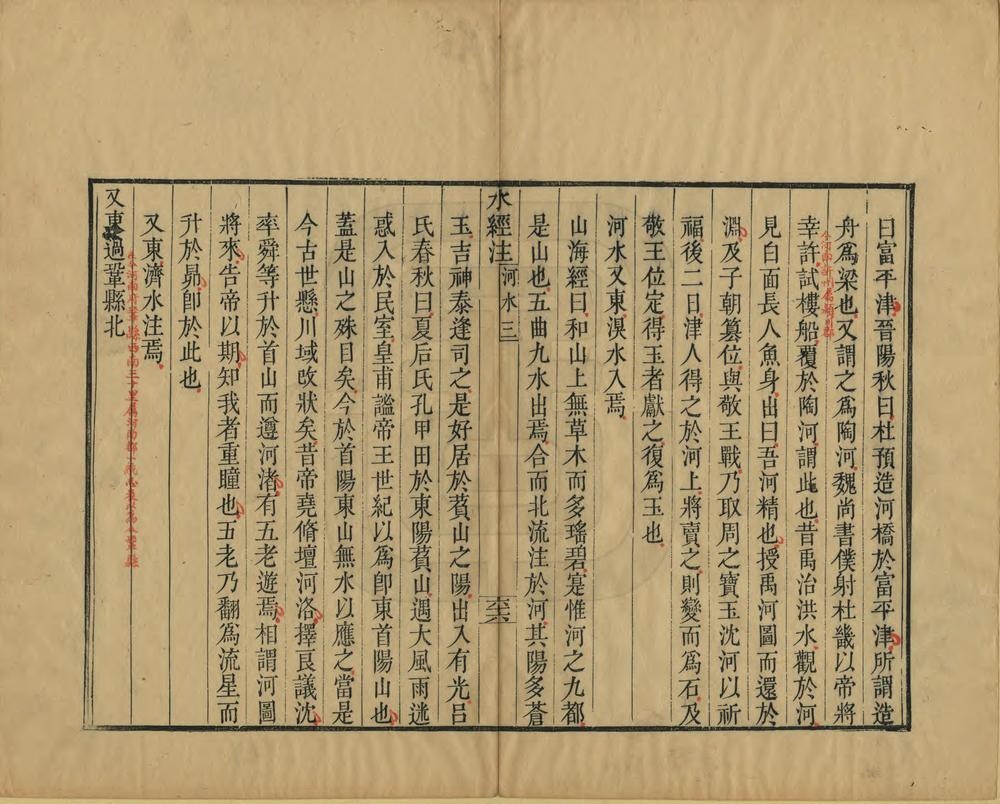 曰富平津晉陽秋曰杜預造河橋於富平津所謂造
舟爲梁也又謂之爲陶河魏尚書僕射杜畿以帝將
幸許試樓船覆於陶河謂此也昔禹治洪水觀於河
見白面長人魚身出曰吾河精也授禹河圖而還於
淵及子朝篡位與敬王戰乃取周之寶玉沈河以祈
福後二日津人得之於河上將賣之則變而爲石及
敬王位定得玉者獻之復爲玉也
河水又東溴水入焉
山海經曰和山上無草木而多瑤碧寔惟河之九都
是山也五曲九水出焉合而北流注於河其陽多蒼
水經注 河水三 六六
玉吉神泰逢司之是好居於萯山之陽出入有光呂
氏春秋曰夏后氏孔甲田於東陽萯山遇大風雨迷
惑入於民室皇甫謐帝王世紀以爲卽東首陽山也
蓋是山之殊目矣今於首陽東山無水以應之當是
今古世懸川域改狀矣昔帝堯脩壇河洛擇良議沈
率舜等升於首山而遵河渚有五老遊焉相謂河圖
將來告帝以期知我者重瞳也五老乃翻爲流星而
升於昴卽於此也
又東濟水注焉
又東過鞏縣北